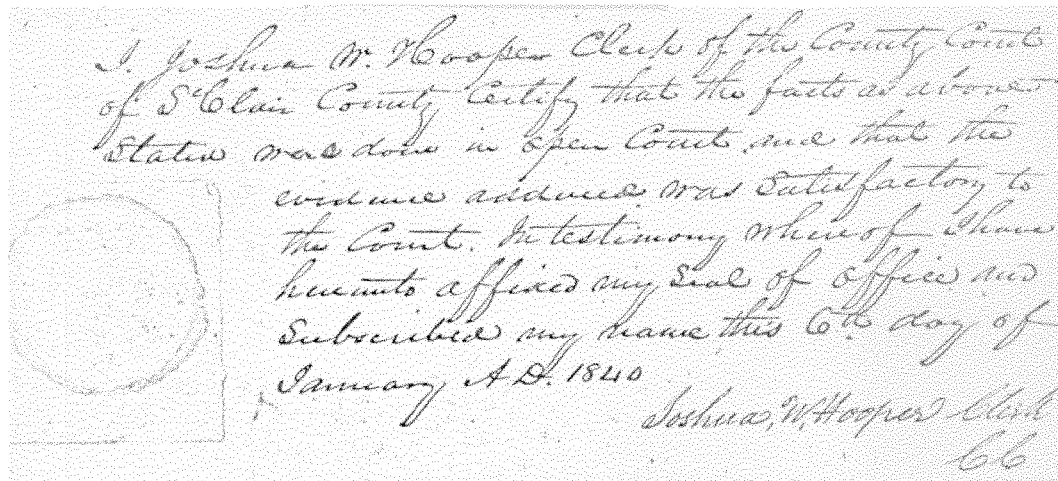 I. Joshua W. Hooper Clerk of the County Court
of St Clair County Certify that the facts as above
Stated were done in open Court and that the
evidence adduced was Satisfactory to
the Court. In testimony whereof I have
hereunto affixed my Seal of office and
Subscribed my name this 6th day of
January A.D. 1840
Joshua, W, Hooper Clerk
CC